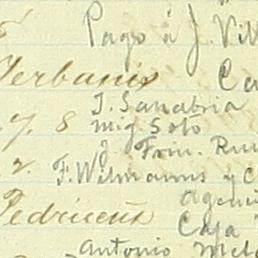 Pago á J. Vill
Terbanio Ca
J. Sanabria
y. 8 Mig. Soto
J. Frin. Rui
2. F. Wilmanns y C
Agenci
Pedriceñ
Caja
Antonio Mel